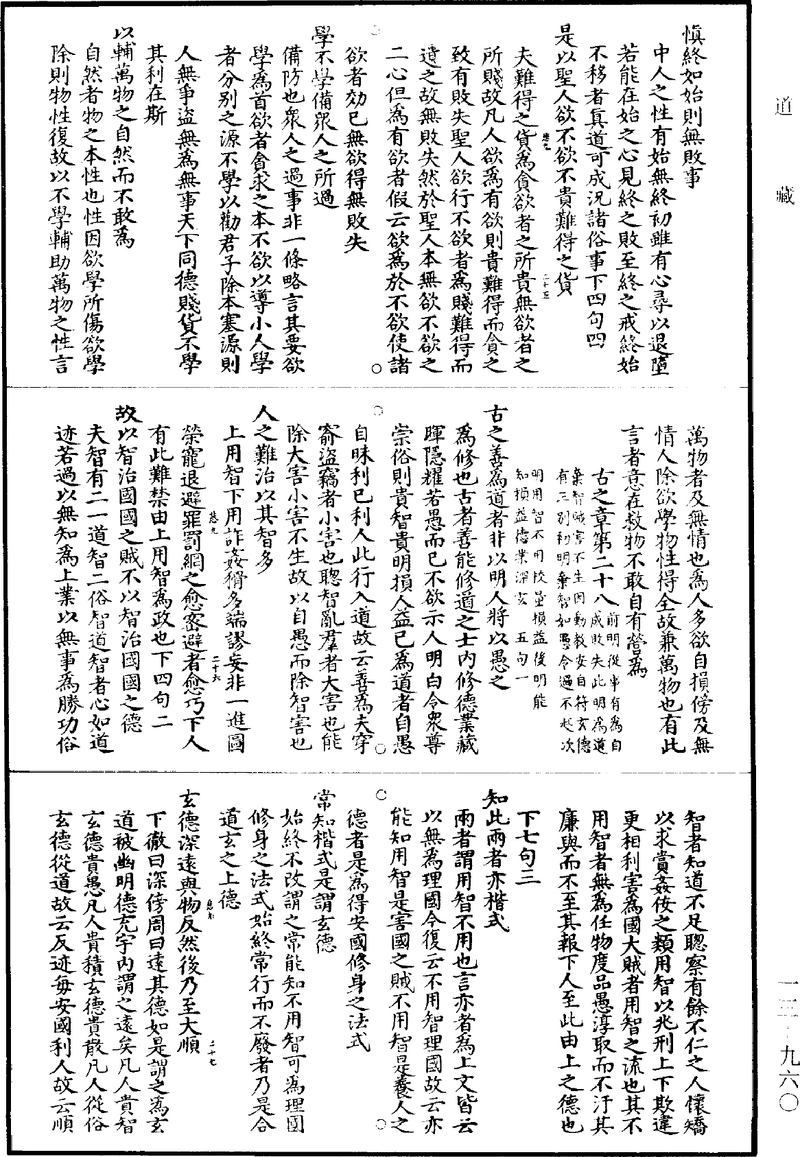 道藏
慎終如始則無敗事
中人之性有始無終初雖有心尋以退墮
若能在始之心見終之敗至終之戒終始
不移者真道可成況諸俗事下四句四
是以聖人欲不欲不貴難得之貨
卷九
二十五
夫難得之貨為貪欲者之所貴無欲者之
所賤故凡人欲為有欲則貴難得而貪之
致有敗失聖人欲行不欲者為賤難得而
遺之故無敗失然於聖人本無欲不欲之
二心但為有欲者假云欲為於不欲使諸
欲者効已無欲得無敗失
學不學備眾人之所過
備防也眾人之過事非一條略言其要欲
學為首欲者貪求之本不欲以導小人學
者分別之源不學以勸君子除本塞源則
人無爭盜無為無事天下同德賤貨不學
其利在斯
以輔萬物之自然而不敢為
自然者物之本性也性因欲學所傷欲學
除則物性復故以不學輔助萬物之性言
萬物者及無情也為人多欲自損傍及無
情人除欲學物性得全故兼萬物也有此
言者意在救物不敢自有營為
古之章第二十八
前明從事有為自
成敗失此明為道
棄智賊害不生因勸教安自符玄德
有三別初明棄智如愚令過不起次
明用智不用校量損益後明能
知損益德業深玄 五句一
古之善為道者非以明人將以愚之
為修也古者善能修道之士內修德業藏
暉隱耀若愚而已不欲示人明白令眾尊
崇俗則貴智貴明損人益已為道者自愚
自昧利已利人此行入道故云善為夫穿
窬盜竊者小害也聰智亂羣者大害也能
除大害小害不生故以自愚而除智害也
人之難治以其智多
上用智下用詐姦猾多端謬妄非一進圖
卷九
二十六
榮寵退避罪罰網之愈密避者愈巧下人
有此難禁由上用智為政也下四句二
故以智治國國之賊不以智治國國之德
夫智有二一道智二俗智道智者心如道
迹若過以無知為上業以無事為勝功俗
智者知道不足聰察有餘不仁之人懷矯
以求賞姦佞之類用智以兆刑上下欺違
更相利害為國大賊者用智之流也其不
用智者無為任物度品愚淳取而不汙其
廉與而不至其報下人至此由上之德也
下七句三
知此兩者亦楷式
兩者謂用智不用也言亦者為上文皆云
以無為理國今復云不用智理國故云亦
能知用智是害國之賊不用智是養人之
德者是為得安國修身之法式
常知楷式是謂玄德
始終不改謂之常能知不用智可為理國
修身之法式始終常行而不廢者乃是合
道玄之上德
卷九
二十七
玄德深遠與物反然後乃至大順
下徹曰深傍周曰遠其德如是謂之為玄
道被幽明德充宇內謂之遠矣凡人貴智
玄德貴愚凡人貴積玄德貴散凡人從俗
玄德從道故云反迹每安國利人故云順
一三-九六〇